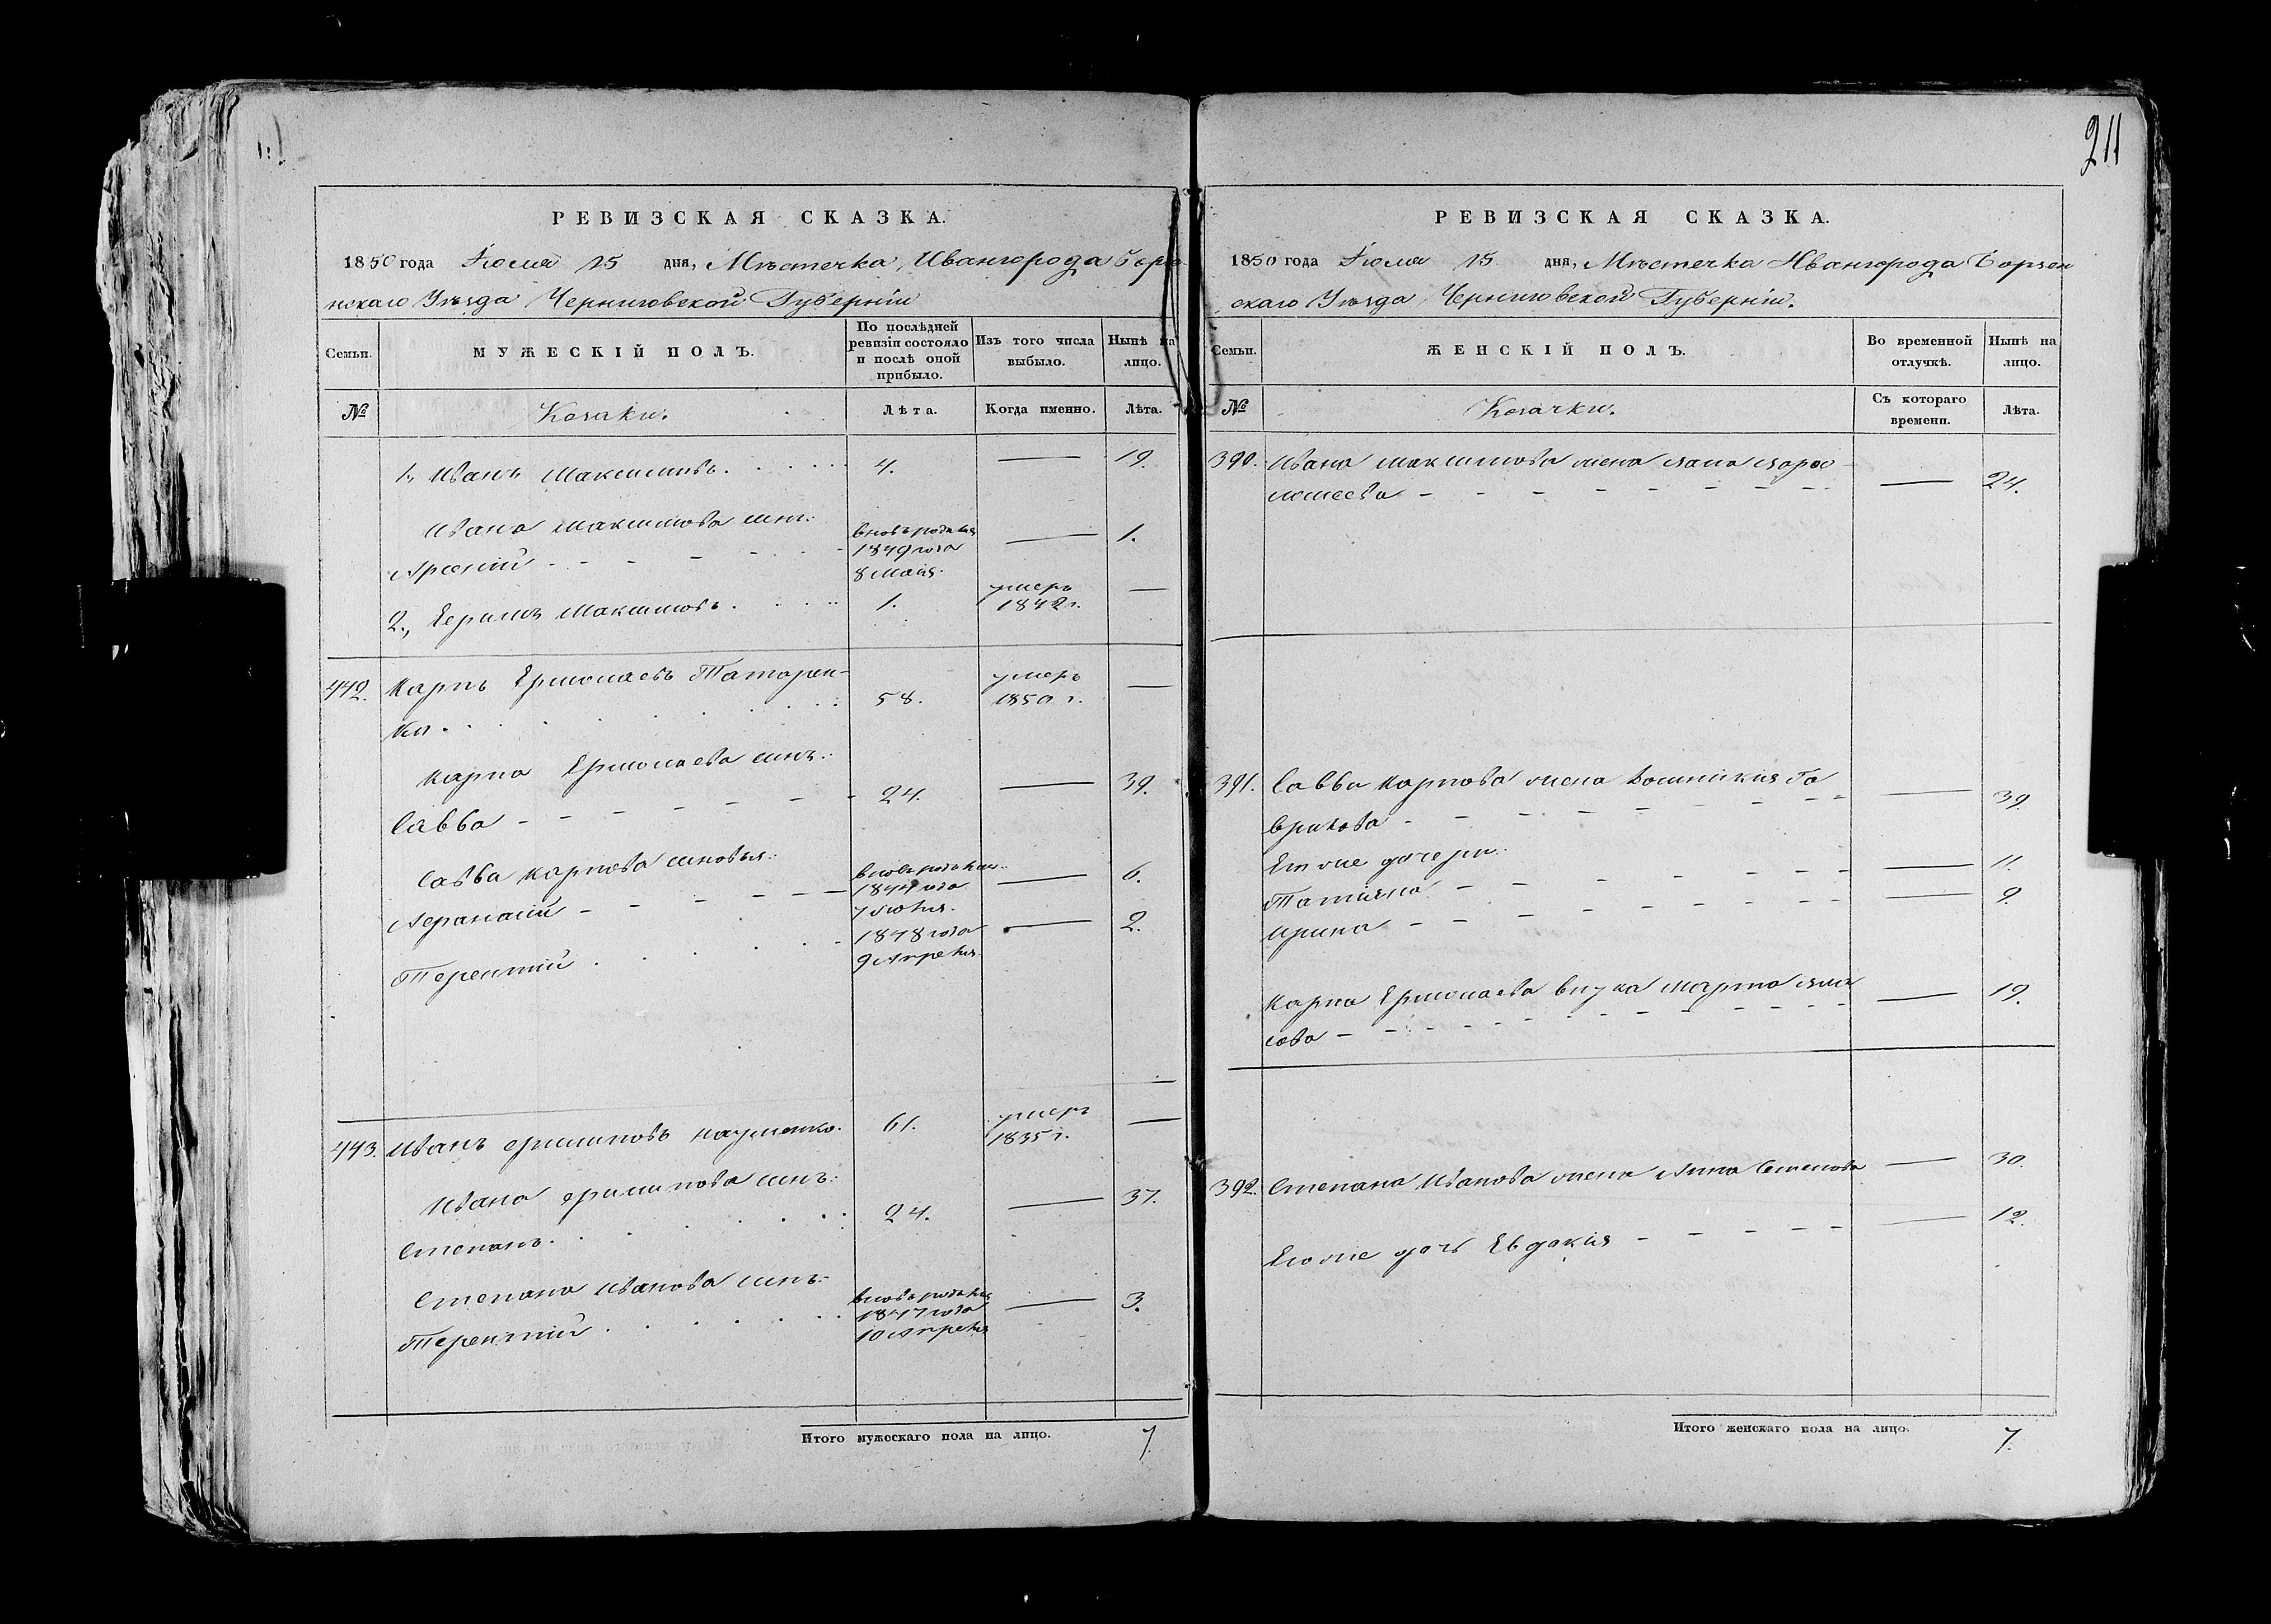 РЕВИЗСКАЯ СКАЗКА.
1850 года Іюля 15 дня, Мѣстечка Ивангорода Борзе
нскаго Уѣзда Черниговской Губерніи
Семьи.
МУЖЕСКІЙ ПОЛЪ.
По послѣдней
ревизіи состояло
и послѣ оной
прибыло.
Изъ того числа
выбыло.
Нынѣ на
лицо.
№ Козаки. Лѣта. Когда именно. Лѣта.
1., Иванъ Максимовъ 4. — 19.
Ивана Максимова сынъ:
Арсеній
вновь рожден
1849 года
8 Мая.
— 1.
2., Ефимъ Максимовъ 1. умеръ 1842 г. —
442. Карпъ Ермолаевъ Татарен-
ко 58. умеръ 1850 г. —
Карпа Ермолаева сынъ:
Савва 24. — 39.
Савва Карпова сыновья:
Афанасій
вновь рожден
1844 года
7 Іюня.
— 6.
Терентій
1848 года
9 Апреля
— 2.
443. Иванъ Филиповъ Науменко. 61. умеръ 1835 г. —
Ивана Филипова сынъ:
Степанъ 24. — 37.
Степана Иванова сынъ:
Терентій
вновь рожден
1847 года
10 Апреля
— 3.
Итого мужескаго пола на лицо. 7.
211
РЕВИЗСКАЯ СКАЗКА.
1850 года Іюля 15 дня, Мѣстечка Ивангорода Борзен
скаго Уѣзда Черниговской Губерніи.
Семьи.
ЖЕНСКІЙ ПОЛЪ.
Во временной
отлучкѣ.
Нынѣ на
лицо.
№ Козачки. Съ котораго
времени. Лѣта.
390. Ивана Максимова жена
— 24.
391. Саввы Карпова жена Домникія Га
врилова — 39
Его же дочери:
Татіяна — 11.
Ирина — 9.
Карпа Ермолаева внука Марфа
— 19.
392. Степана Иванова жена Анна Семенова — 30.
Его же дочь Евдокія — 12.
Итого женскаго пола на лицо. 7.